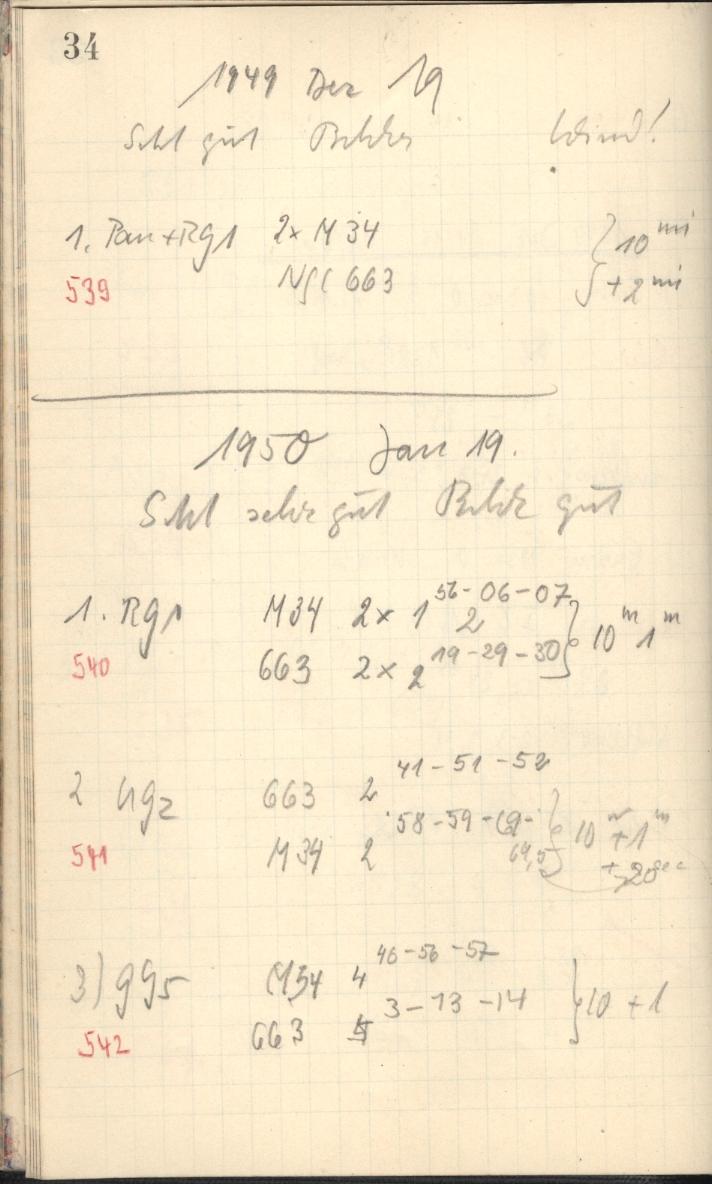 34
1949 Dez 19
gut Wind!
1. Pan+Rg1 2x M 34 10 mi
539 NGC 663 +2 mi
1950 Jan 19.
sehr gut Bilder gut
1. Rg1 M34 2x 1 56-06-07 2 10 m 1 m
540 663 2x 2 19-29-30
2 Ug2 663 2 41-51-52
541 M34 2 58-59- 10 m +1 m
+20 sec
3) gg5 M34 4 46-56-57
542 663 5 3-13-14 10 + 1